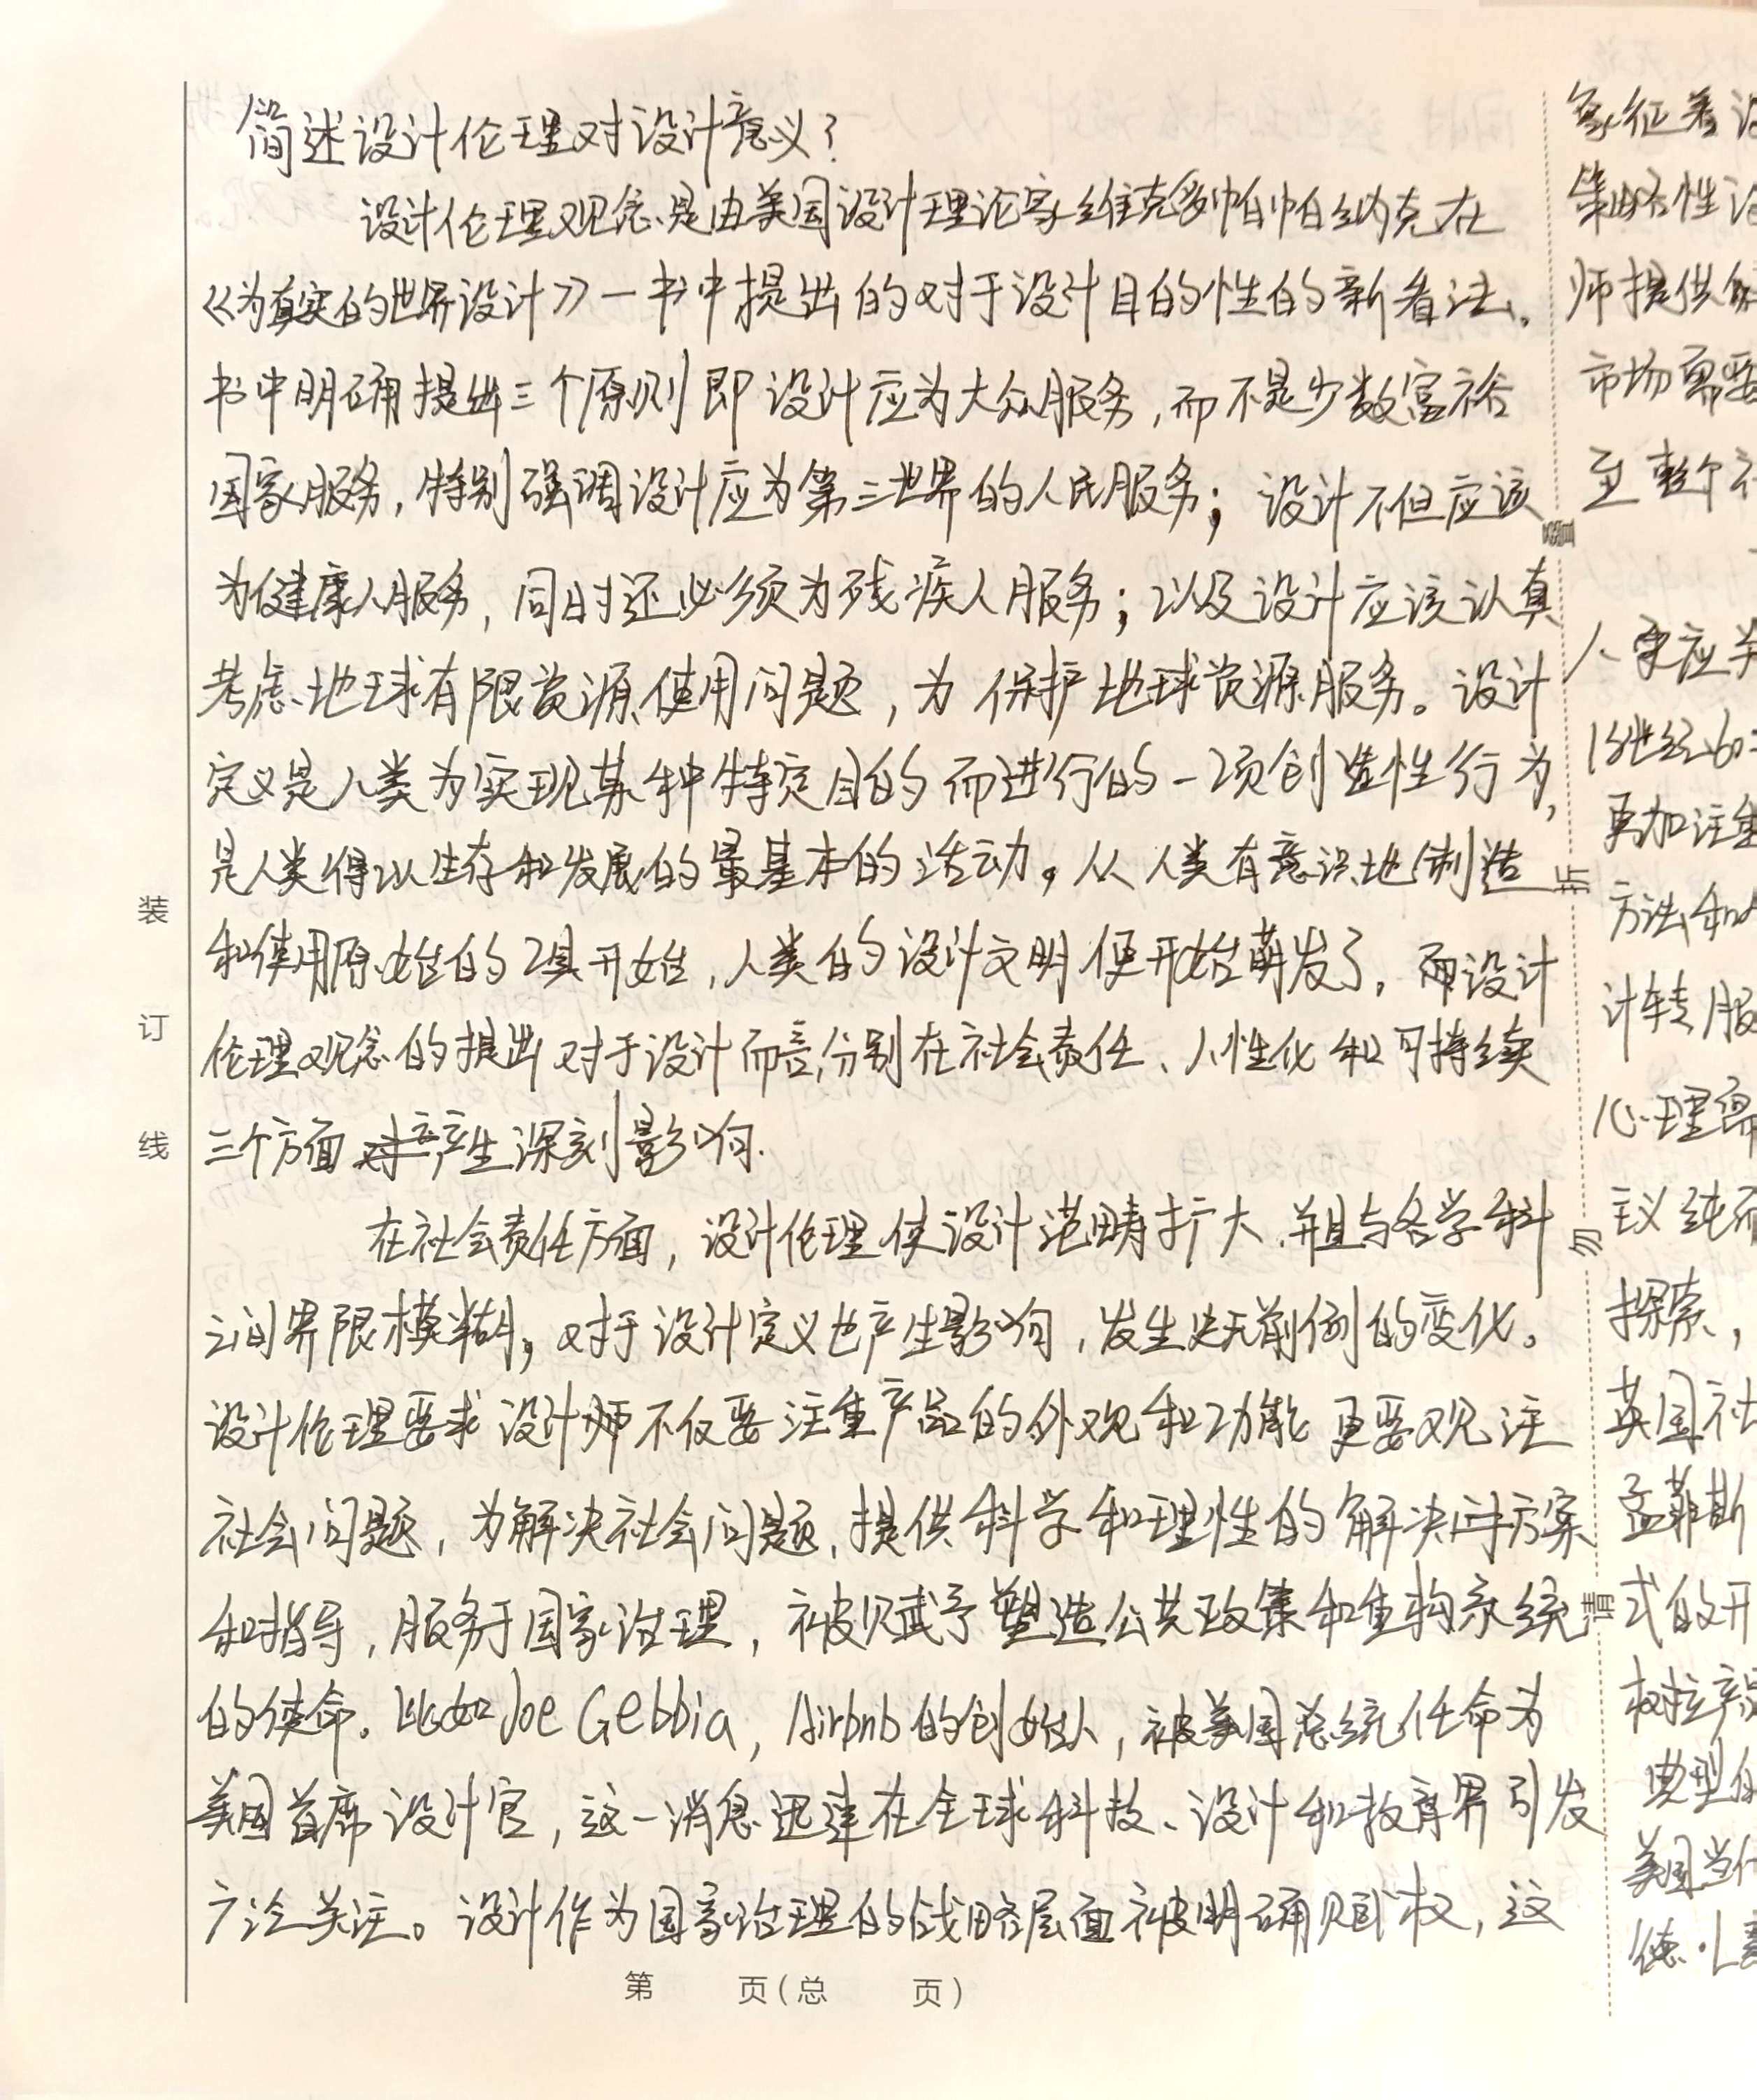 简述设计伦理对设计意义？
设计伦理观念是由美国设计理论家维克多帕帕纳克在
《为真实的世界设计》一书中提出的对于设计目的性的新看法。
书中明确提出三个原则即设计应为大众服务，而不是少数富裕
国家服务，特别强调设计应为第三世界的人民服务；设计不但应该
为健康人服务，同时还必须为残疾人服务；以及设计应该认真
考虑地球有限资源使用问题，为保护地球资源服务。设计
定义是人类为实现某种特定目的而进行的一项创造性行为，
是人类得以生存和发展的最基本的活动。从人类有意识地制造
和使用原始的工具开始，人类的设计文明便开始萌发了，而设计
伦理观念的提出对于设计而言，分别在社会责任、人性化和可持续
三个方面产生深刻影响.
在社会责任方面，设计伦理使设计范畴扩大，并且与各学科
之间界限模糊，对于设计定义也产生影响，发生史无前例的变化。
设计伦理要求设计师不仅要注重产品的外观和功能更要观注
社会问题，为解决社会问题，提供科学和理性的解决方案
和指导，服务于国家治理，被赋予塑造公共政策和重构系统
的使命。比如Joe Gebbia，Airbnb的创始人，被美国总统任命为
美国首席设计官，这一消息迅速在全球科技、设计和教育界引发
广泛关注。设计作为国家治理的战略层面被明确赋权，这
第 页（总 页）
装
订
线
折
勿
请
象征着设
策略性设
师提供
市场需要
至整个社
人
18世纪60
更加注重
方法和
计转服
心理需
主义纯
探索，
英国社
孟菲斯
式的开
典型的
美国当代
德·